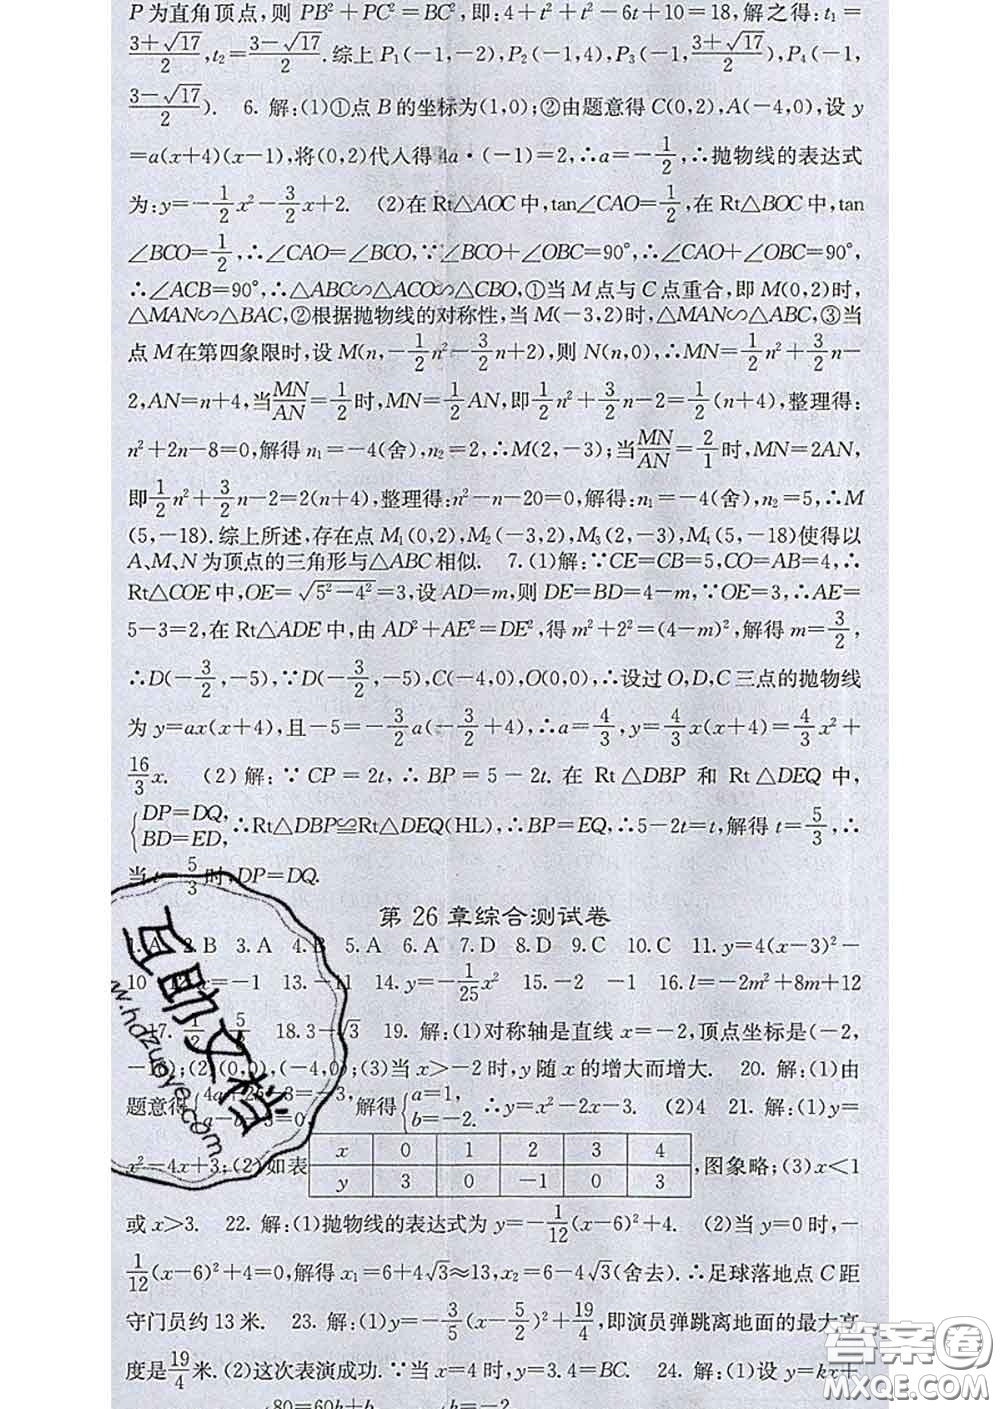 P为直角顶点,则 PB²+PC²=BC²,即:4+t²+t²-6t+10=18,解之得:t₁=
(3+√17)/2,t₂=(3-√17)/2.综上 P₁(-1,-2),P₂(-1,4),P₃(-1,(3+√17)/2),P₄(-1,
(3-√17)/2). 6. 解:(1)①点B的坐标为(1,0);②由题意得C(0,2),A(-4,0),设 y
=a(x+4)(x-1),将(0,2)代人得4a·(-1)=2,∴a=-1/2,∴抛物线的表达式
为:y=-1/2x²-3/2x+2. (2)在Rt△AOC中,tan∠CAO=1/2,在Rt△BOC中,tan
∠BCO=1/2,∴∠CAO=∠BCO,∵∠BCO+∠OBC=90°,∴∠CAO+∠OBC=90°,
∴∠ACB=90°,∴△ABC∽△ACO∽△CBO,①当M点与C点重合,即M(0,2)时,
△MAN∽△BAC,②根据抛物线的对称性,当M(-3,2)时,△MAN∽△ABC,③当
点M在第四象限时,设M(n,-1/2n²-3/2n+2),则N(n,0),∴MN=1/2n²+3/2n-
2,AN=n+4,当MN/AN=1/2时,MN=1/2AN,即1/2n²+3/2n-2=1/2(n+4),整理得:
n²+2n-8=0,解得n₁=-4(舍),n₂=2,∴M(2,-3);当MN/AN=2/1时,MN=2AN,
即1/2n²+3/2n-2=2(n+4),整理得:n²-n-20=0,解得:n₁=-4(舍),n₂=5,∴M
(5,-18).综上所述,存在点M₁(0,2),M₂(-3,2),M₃(2,-3),M₄(5,-18)使得以
A、M、N为顶点的三角形与△ABC相似. 7.(1)解:∵CE=CB=5,CO=AB=4,∴
Rt△COE中,OE=√(5²-4²)=3,设AD=m,则DE=BD=4-m,∵OE=3,∴AE=
5-3=2,在Rt△ADE中,由AD²+AE²=DE²,得m²+2²=(4-m)²,解得m=3/2,
∴D(-3/2,-5),∵D(-3/2,-5),C(-4,0),O(0,0),∴设过O,D,C三点的抛物线
为y=ax(x+4),且-5=-3/2a(-3/2+4),∴a=4/3,y=4/3x(x+4)=4/3x²+
16/3x. (2)解:∵CP=2t,∴BP=5-2t.在Rt△DBP和Rt△DEQ中,
{DP=DQ, BD=ED,∴Rt△DBP≌Rt△DEQ(HL),∴BP=EQ,∴5-2t=t,解得t=5/3,∴
当t=5/3时,DP=DQ.
第26章综合测试卷
1.A 2.B 3.A 4.B 5.A 6.A 7.D 8.D 9.C 10.C 11.y=4(x-3)²-
10 12.x=-1 13.-11 14.y=-1/25x² 15.-2 -1 16.l=-2m²+8m+12
17.1/2 5/ 18.3-√3 19. 解:(1)对称轴是直线x=-2,顶点坐标是(-2,
-);(2)(0,0),(-4,0);(3)当x>-2时,y随x的增大而增大. 20. 解:(1)由
题意得{4a+2b-3=-3, a-b-3=0, 解得{a=1, b=-2. ∴y=x²-2x-3. (2)4 21. 解:(1)y=
x²-4x+3;(2)如表 x 0 1 2 3 4
y 3 0 -1 0 3 ,图象略;(3)x<1
或x>3. 22. 解:(1)抛物线的表达式为y=-1/12(x-6)²+4. (2)当y=0时,-
1/12(x-6)²+4=0,解得x₁=6+4√3≈13,x₂=6-4√3(舍去).∴足球落地点C距
守门员约13米. 23. 解:(1)y=-3/5(x-5/2)²+19/4,即演员弹跳离地面的最大高
度是19/4米.(2)这次表演成功.∵当x=4时,y=3.4=BC. 24. 解:(1)设y=kx+
80=60k+b k=-2
互助文档
w.hdzuoye.com
答案圈
MXQE.COM